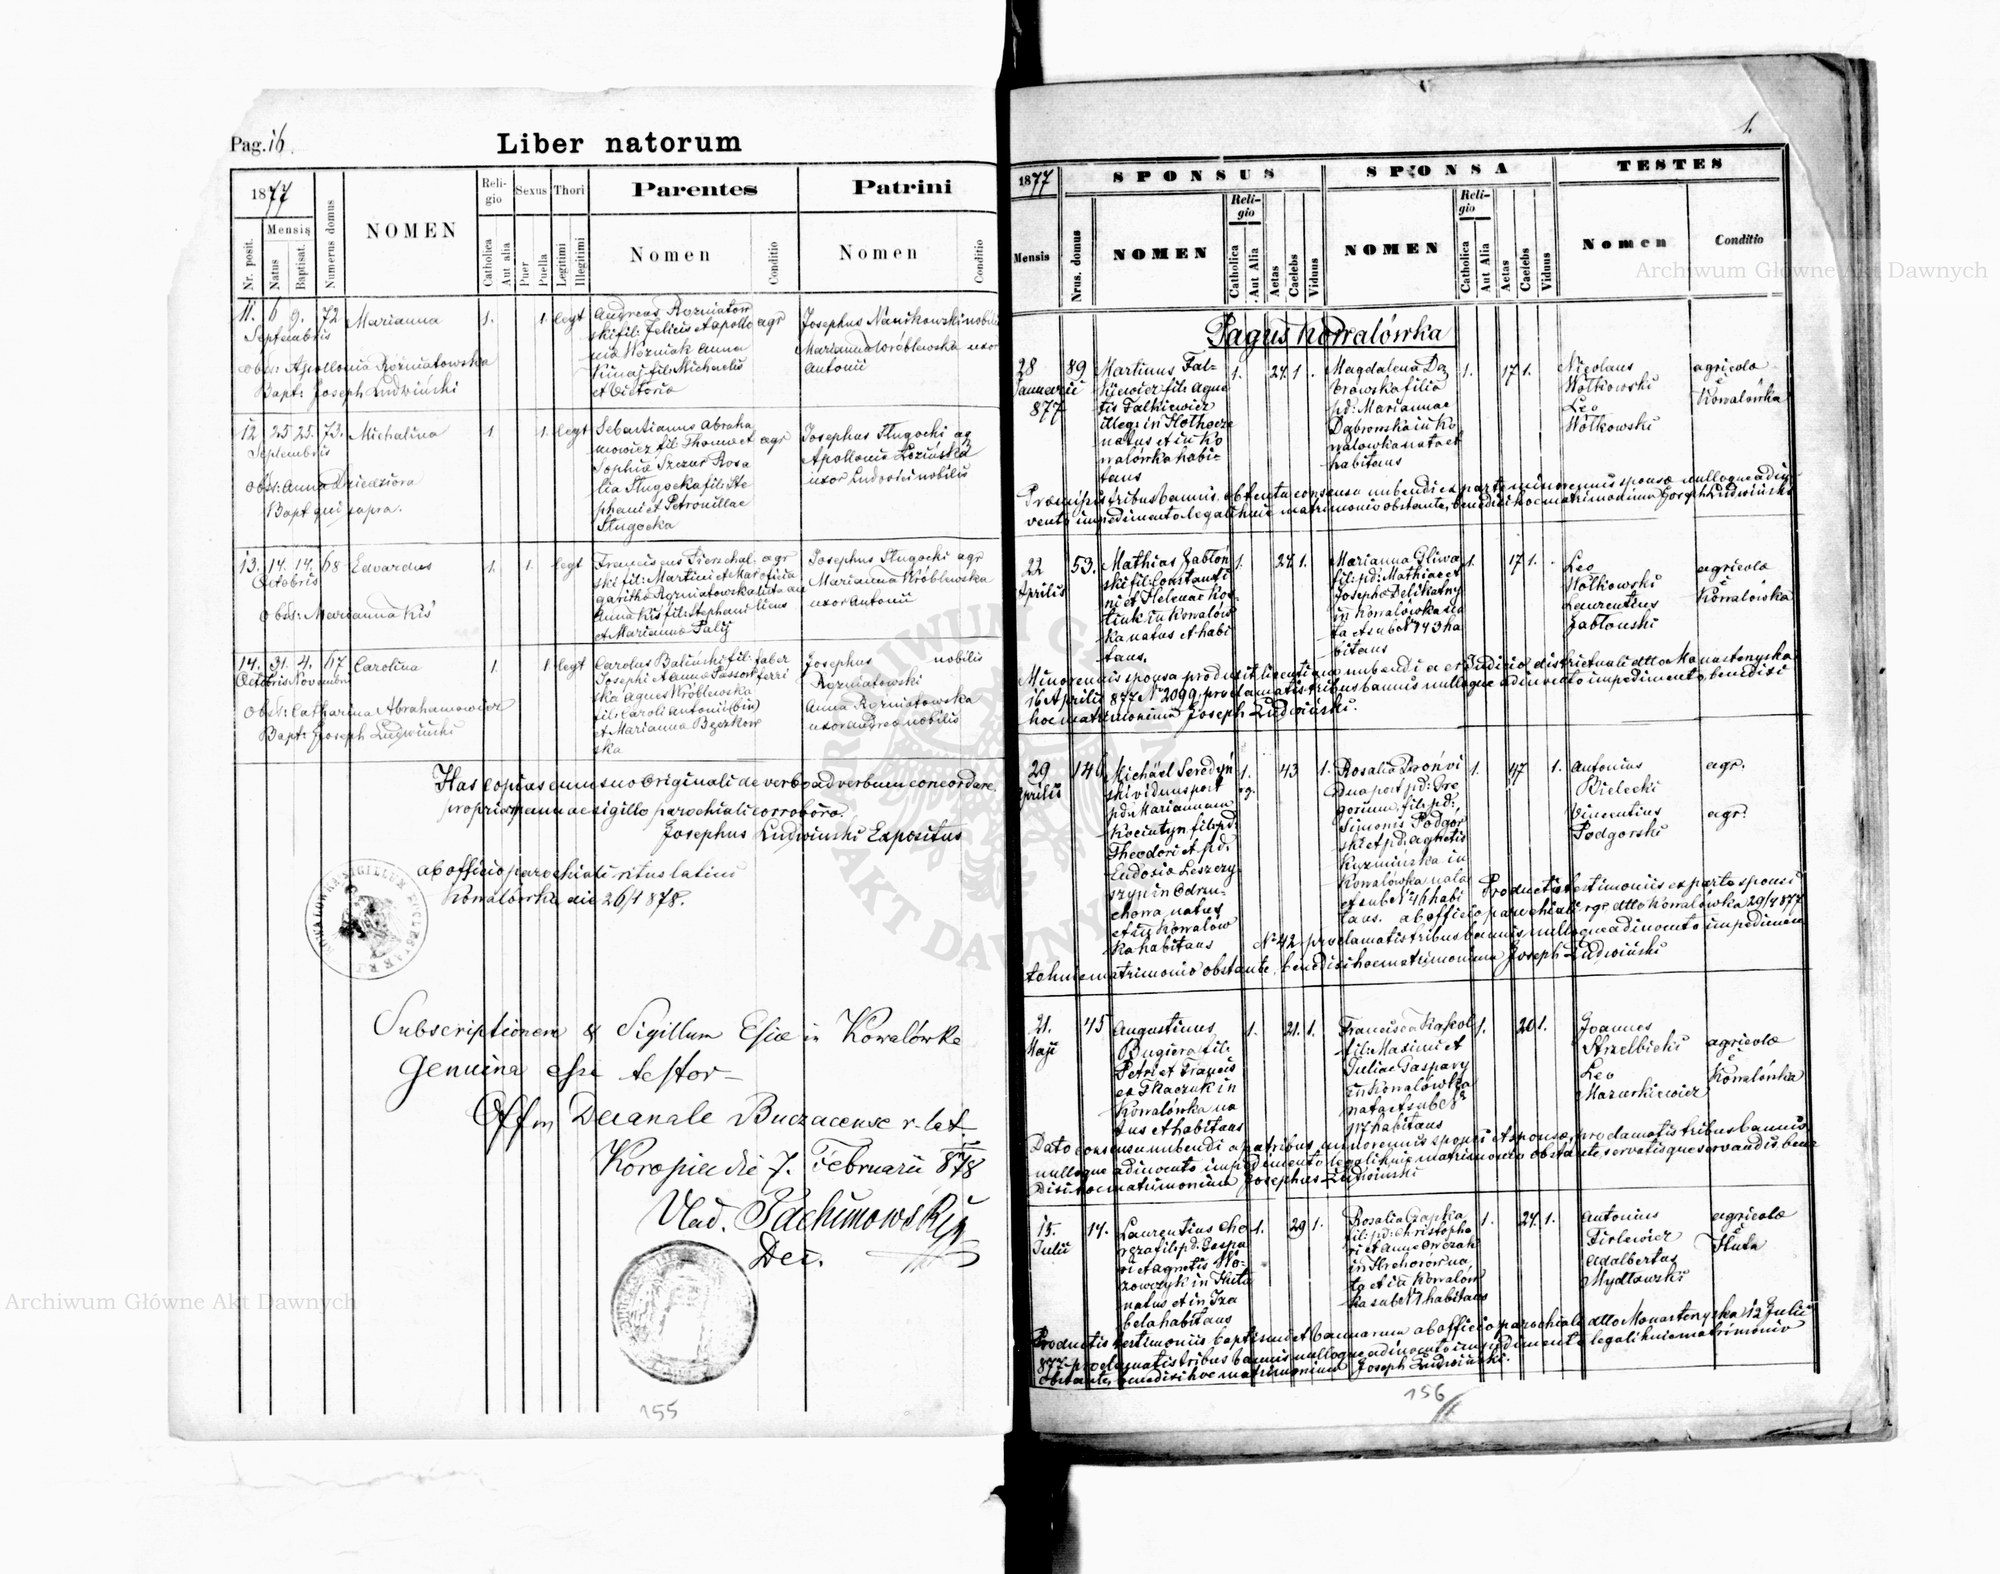 Pag. 16.
Liber natorum
1877
Mensis
Nr. posit.
Natus
Baptisat.
Numerus domus
NOMEN
Religio
Catholica
Aut alia
Sexus
Puer
Puella
Thori
Legitimi
Illegitimi
Parentes
Nomen
Conditio
Patrini
Nomen
Conditio
11. 6 9. 72 Marianna 1. 1 legt
Septembris
Andreas Rozniatow
ski fil: Felicis et Apollo agr
nia Wozniak Anna
Kinaj fil: Michaelis
et Victoria
Josephus Nanikowski nobilis
Marianna Wróblewska uxor
Antonii
Obst: Apollonia Rozniatowska
Bapt: Joseph Ludwiński
12 25 25. 73. Michalina 1 1. legt
Septembris
Sebastianus Abraha
mowicz fil: Thoma et agr
Sophia Szczur Rosa
lia Sługocka fil: Ste
phani et Petronillae
Sługocka
Josephus Sługocki ag
Apollonia Łozińska
uxor Ludovici nobilis
Obst: Anna Dziedziora
Bapt qui supra.
13. 14. 14. 68 Edvardus 1. 1. legt
Octobris
Franciscus Pierzchal agr
ski fil: Martini et Mar
garitha Rozniatowska
Anna Kiś fil: Stephani
et Marianna Palij
Josephus Sługocki agr
Marianna Wróblewska
uxor Antonii
Obst: Marianna Kiś
14. 31. 4. 67 Carolina 1. 1 legt
Octobris Novembri
Carolus Baliński fil: faber
Josephi et Anna Sassow ferri
ska Agnes Wróblewska
fil: Caroli Antonii (bin)
et Marianna Bęczkow
ska
Josephus nobilis
Rozniatowski
Anna Rozniatowska
uxor Andreae nobilis
Obst: Catharina Abrahamowicz
Bapt: Joseph Ludwiński
Has copias cum suo originali de verbo ad verbum concordare
propria manu ac sigillo parochiali corroboro.
Josephus Ludwiński Expositus
ab officio parochiali ritus latini
Kowalówka die 26/1 878.
Subscriptionem & Sigillum Esiae in Kowalówka
Genuina esse testor
Off Decanale Buczacense r. lat
Koropiec die 7. Februarii 878
Vlad.
Dec.
155
1.
1877
Mensis
Nrus. domus
SPONSUS
NOMEN
Religio
Catholica
Aut Alia
Aetas
Caelebs
Viduus
SPONSA
NOMEN
Religio
Catholica
Aut Alia
Aetas
Caelebs
Viduus
TESTES
Nomen
Conditio
Pagus Kowalówka
28
Januarii
877
89
Martinus Fal-
kiewicz fil: Agne
tis Falkiewicz
illeg: in Hothocze
natus et in Ko
walówka habi-
tans
1. 24. 1.
Magdalena Dą
browska filia
pd: Mariannae
Dąbrowska in Ko
walowka nata et
habitans
1. 17 1.
Nicolaus
Wołkowski
Leo
Wołkowski
agricolae
Kowalówka
Promissis tribus bannis, obtenta consensu nubendi ex parte minorennis sponsae nulloque adin
vento impedimento legali huic matrimonio obstante, benedixi hoc matrimonium Joseph Ludwiński
22
Aprilis
53.
Mathias Jabłoń
ski fil: Constanti
ni et Helenae Kos
tiuk in Kowalów
ka natus et habi
tans.
1. 24. 1.
Marianna Gliwa
fil: pd: Mathiae et
Josepha Delikatny
in Kowalówka na
ta et sub N 143 ha
bitans
1. 17 1.
Leo
Wołkowski
Laurentius
Jabłonski
agricolae
Kowalówka
Minorennis sponsa produxit licentiam nubendi a Judicio districtuali dtto Monasterzyska
16 Aprilis 877 N 2099, proclamatis tribus bannis nulloque adinvento impedimento, benedixi
hoc matrimonium Joseph Ludwiński.
29
Aprilis
146
Michael Seredyń
ski viduus post
pd: Mariannam
Kociatyn fil: pd:
Theodori et pd:
Eudoxia Leszczy
szyn in Odrzu-
chowa natus
et in Kowalów
ka habitans
1. 43 1.
Rosalia Proń vi
dua post pd: Gre
gorium fil: pd:
Simonis Podgor
ski et pd: Agnetis
Kuzmińska in
Kowalówka nata
et sub N 46 habi
tans.
1. 47 1.
Antonius
Bielecki
Vincentius
Podgorski
agr.
agr.
Productis testimoniis ex parte sponsi
ab officio parochiali r.gr. dtto Kowalówka 29/4 877
N 42 proclamatis tribus bannis nulloque adinvento impedimen
to huic matrimonio obstante, benedixi hoc matrimonium Joseph Ludwiński
21.
Maji
45
Augustinus
Bugiera fil:
Petri et Francis
ca Tkaczuk in
Kowalówka na
tus et habitans
1. 21. 1.
Francisca Kaspol
fil: Maximi et
Juliae Gaspary
in Kowalówka
nata et sub N
117 habitans
1. 20 1.
Joannes
Strzelbicki
Leo
Mazurkiewicz
agricolae
Kowalówka
Dato consensu nubendi a patribus minorennis sponsi et sponsae, proclamatis tribus bannis
nulloque adinvento impedimento legali huic matrimonio obstante, servatisque servandis bene
dixi hoc matrimonium Josephus Ludwiński
15.
Julii
14.
Laurentius Cho
rza fil: pd: Gaspa
ri et Agnetis Wo-
zowczyk in Huta
natus et in Iza
bela habitans
1. 29 1.
Rosalia Czapka
fil: pd: Christopho
ri et Anna Owczak
in Hrehorów na
ta et in Kowalów
ka sub N 1 habitans
1. 24. 1.
Antonius
Firlewicz
Adalbertus
Wydłowski
agricolae
Huta
Productis testimoniis baptismi et bannorum ab officio parochiali dtto Monasterzyska 12 Julii
877 proclamatis tribus bannis nulloque adinvento impedimento legali huic matrimonio
obstante, benedixi hoc matrimonium Joseph Ludwiński.
156
Archiwum Główne Akt Dawnych
Archiwum Główne Akt Dawnych
ARCHIWUM GŁÓWNE AKT DAWNYCH